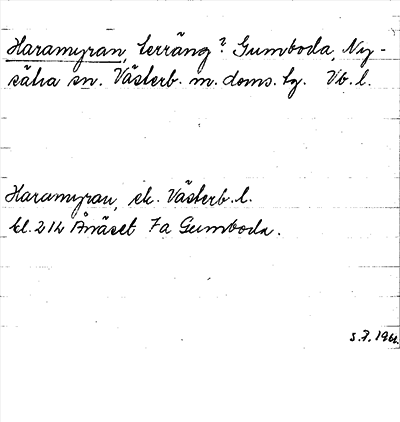 Haramyran, terräng? Gumboda, Ny-
sätra sn. Västerb. m. doms. hg. Vb. l.
Haramyran, ek. Västerb. l.
bl. 212 Ånäset 7a Gumboda.
S. F. 1961.